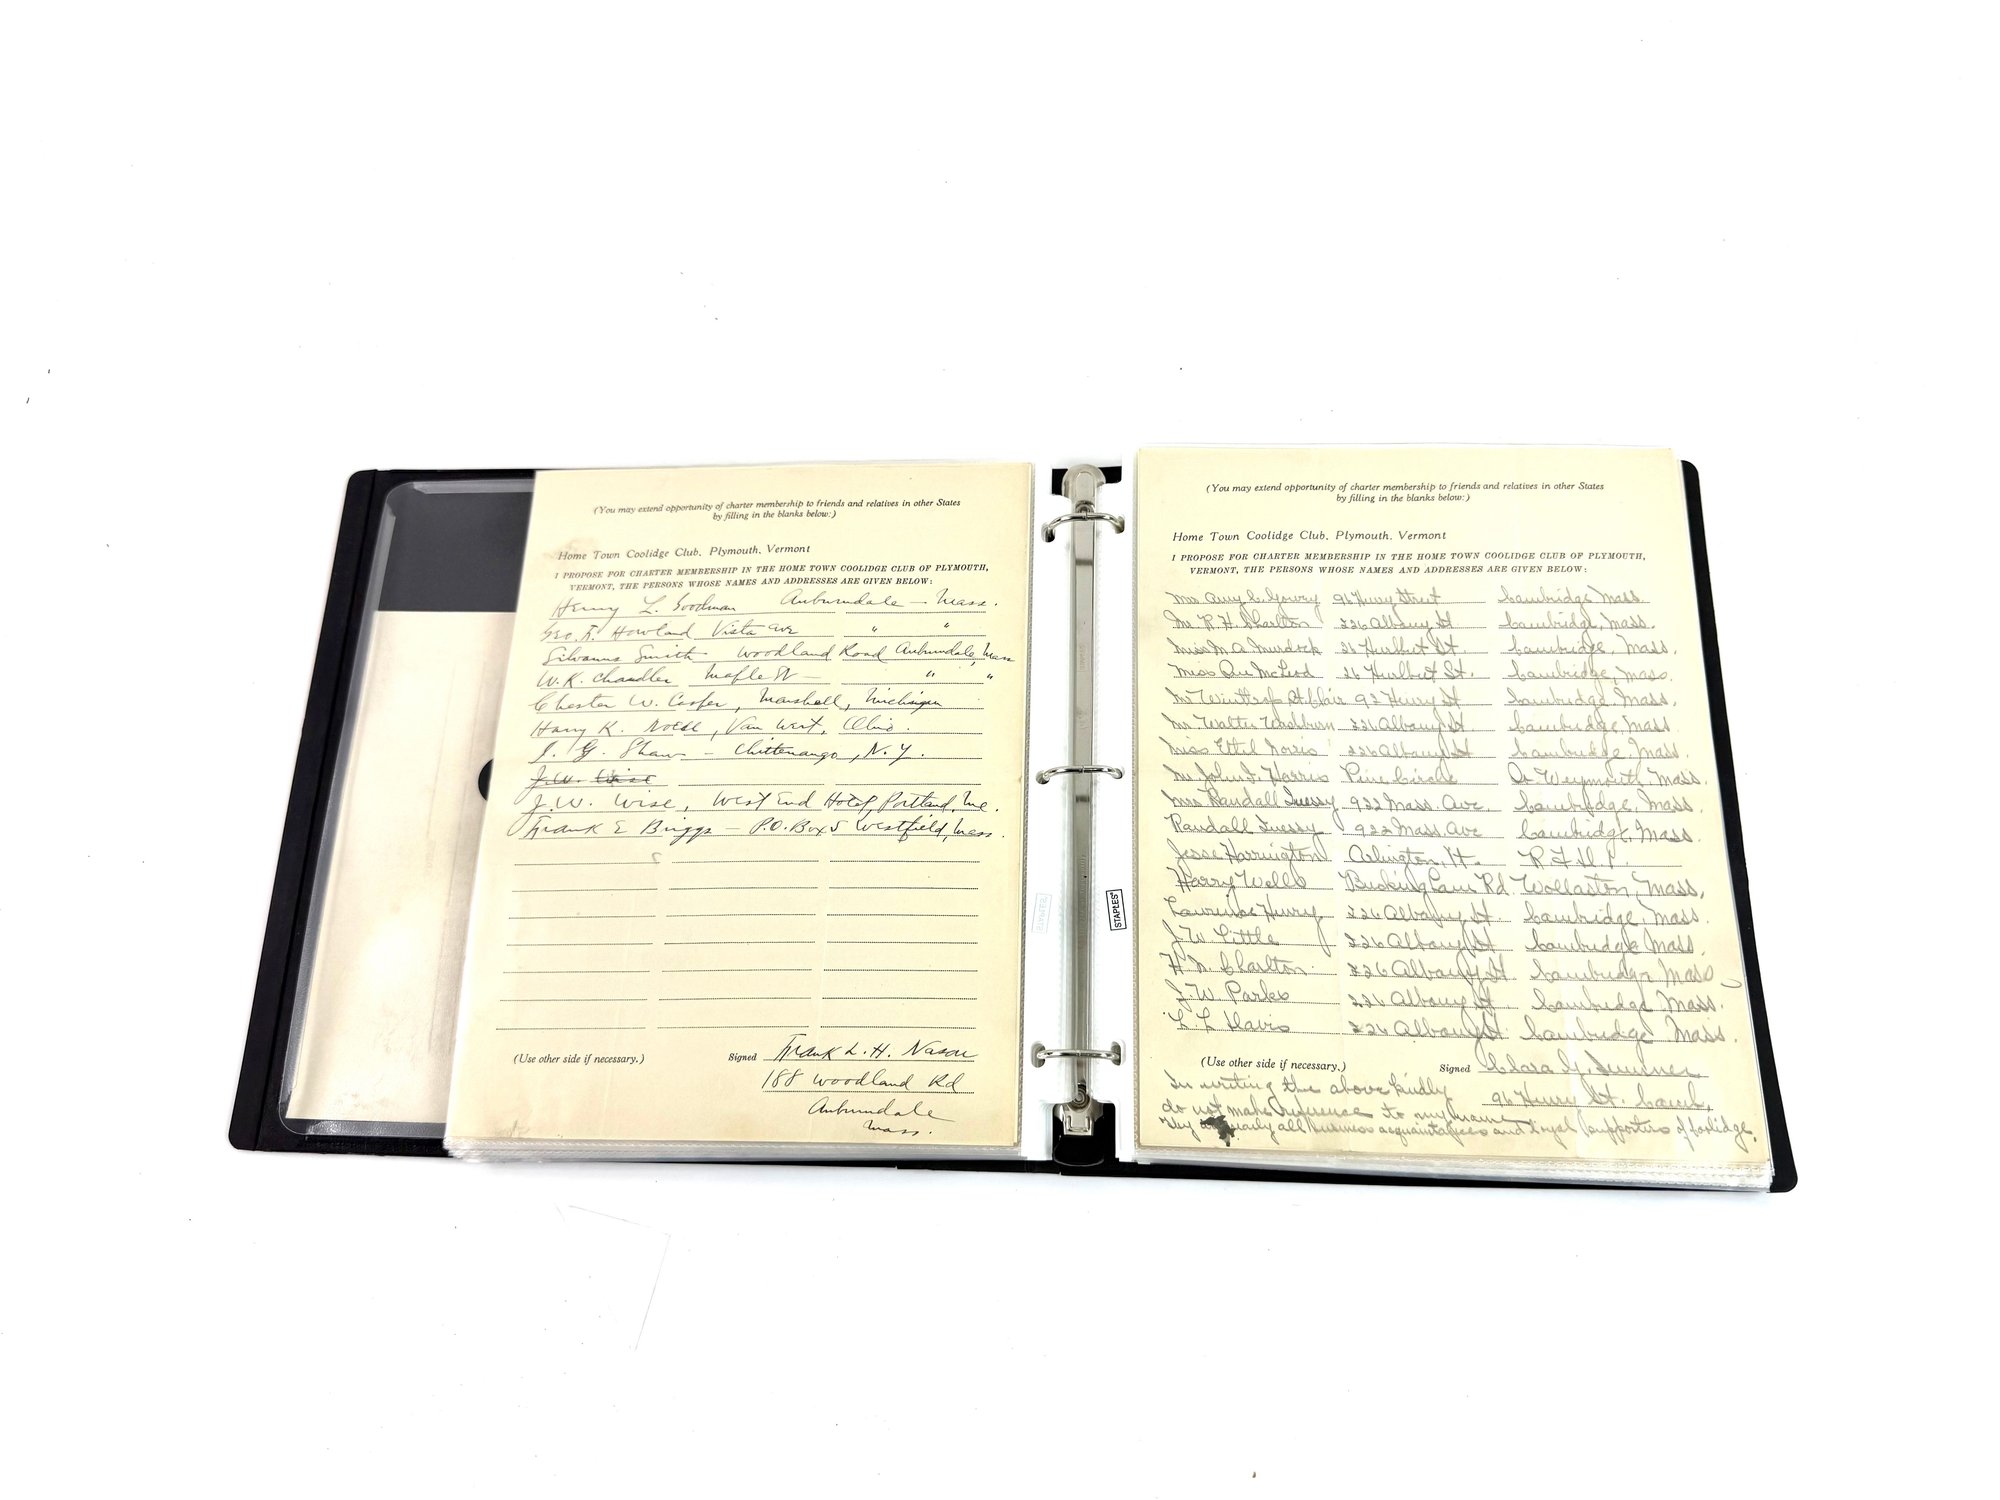 (You may extend opportunity of charter membership to friends and relatives in other States
by filling in the blanks below:)
Home Town Coolidge Club, Plymouth, Vermont
I PROPOSE FOR CHARTER MEMBERSHIP IN THE HOME TOWN COOLIDGE CLUB OF PLYMOUTH,
VERMONT, THE PERSONS WHOSE NAMES AND ADDRESSES ARE GIVEN BELOW:
Henry L. Goodman Auburndale - Mass.
Geo. Howland Vista Ave " "
Silvanus Smith Woodland Road Auburndale, Mass
W.K. Chandler Maple St - " "
Chester W. Cooper, Marshall, Michigan
Harry K. Van Wert, Ohio.
G. Shaw - Chittenango, N.Y.
J.W. Wise
J.W. Wise, West End Hotel, Portland, Me.
Frank E Briggs - P.O. Box 5 Westfield, Mass.
(Use other side if necessary.) Signed Frank L. H. Nason
188 Woodland Rd
Auburndale
Mass.
STAPLES
(You may extend opportunity of charter membership to friends and relatives in other States
by filling in the blanks below:)
Home Town Coolidge Club, Plymouth, Vermont
I PROPOSE FOR CHARTER MEMBERSHIP IN THE HOME TOWN COOLIDGE CLUB OF PLYMOUTH,
VERMONT, THE PERSONS WHOSE NAMES AND ADDRESSES ARE GIVEN BELOW:
Mrs Amy 96 Henry Street Cambridge Mass.
Mr. R H Charlton 226 Albany St Cambridge, Mass.
Miss M A Murdock 26 Hurlbut St Cambridge, Mass.
Miss McLeod 26 Hurlbut St. Cambridge, Mass.
Mr Winthrop St.Clair 92 Henry St Cambridge Mass.
Mr Walter Washburn 226 Albany St. Cambridge, Mass
Miss Ethel Norris 226 Albany St Cambridge, Mass.
Mr John F Harris Pine Circle Weymouth, Mass.
Mrs Randall 922 Mass. Ave. Cambridge, Mass.
Randall 922 Mass Ave Cambridge, Mass.
Jesse Harrington Arlington, Vt. R F D 1.
Harry Wells Buckingham Rd. Wollaston, Mass,
Lawrence Henry 226 Albany St. Cambridge, Mass.
J W. Little 226 Albany St Cambridge Mass
H N. Charlton 226 Albany St. Cambridge Mass
J W Parks 226 Albany St Cambridge Mass.
L L Davis 226 Albany St Cambridge Mass.
(Use other side if necessary.) Signed Clara G. Sumner
In writing the above kindly 96 Henry St. Camb,
do not make reference to my name
They nearly all business acquaintances and loyal supporters of Coolidge.